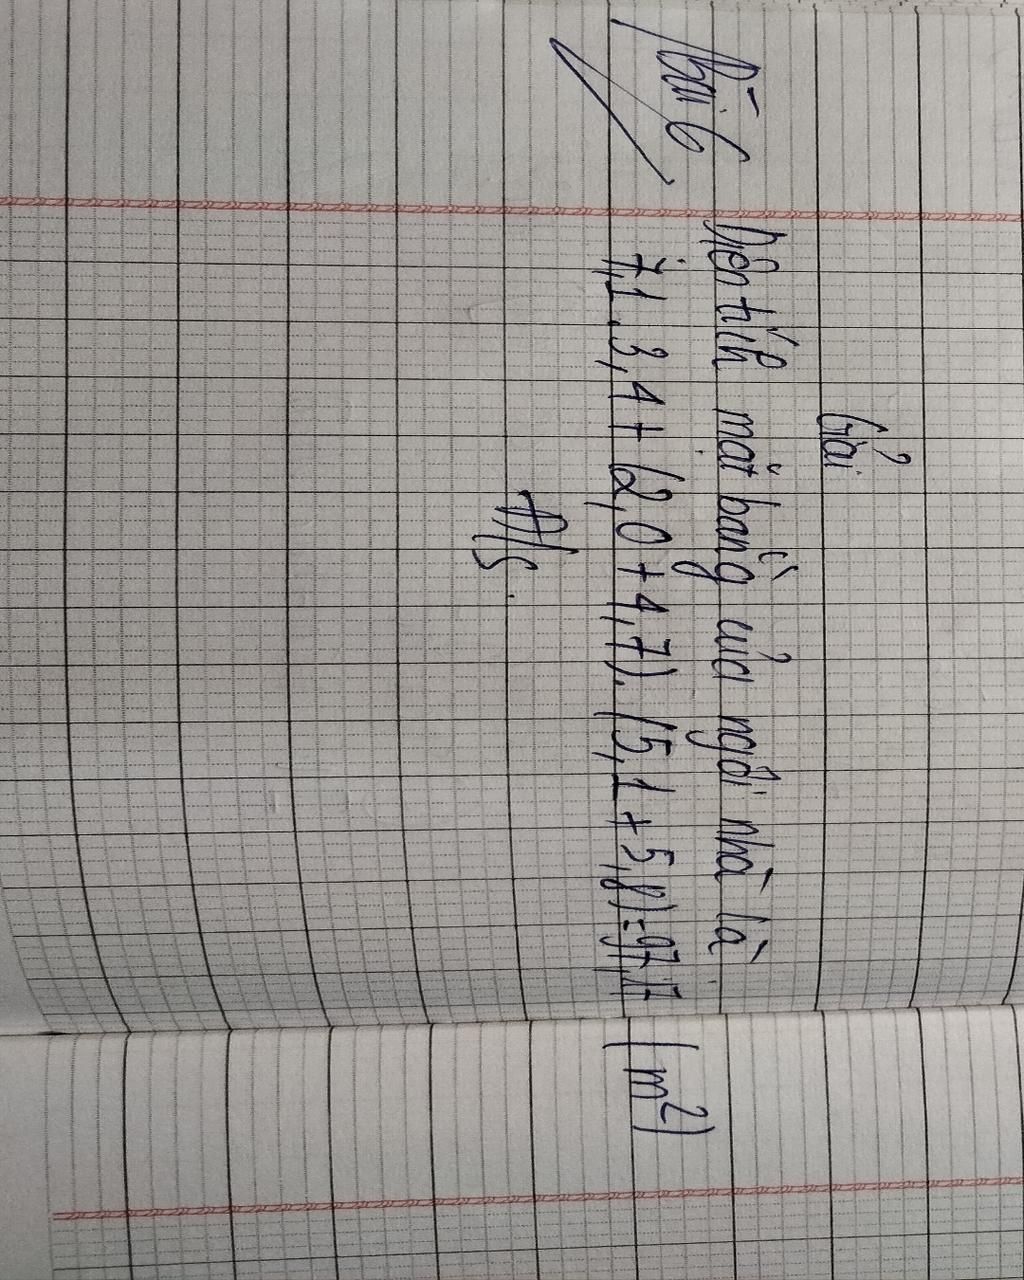 Bài 6
Giải
Diện tích mặt bằng của ngôi nhà là
7,1.3,4 + (2,0 + 4,7).(5,1 + 5,8) = 97,17 (m²)
Đ/S.